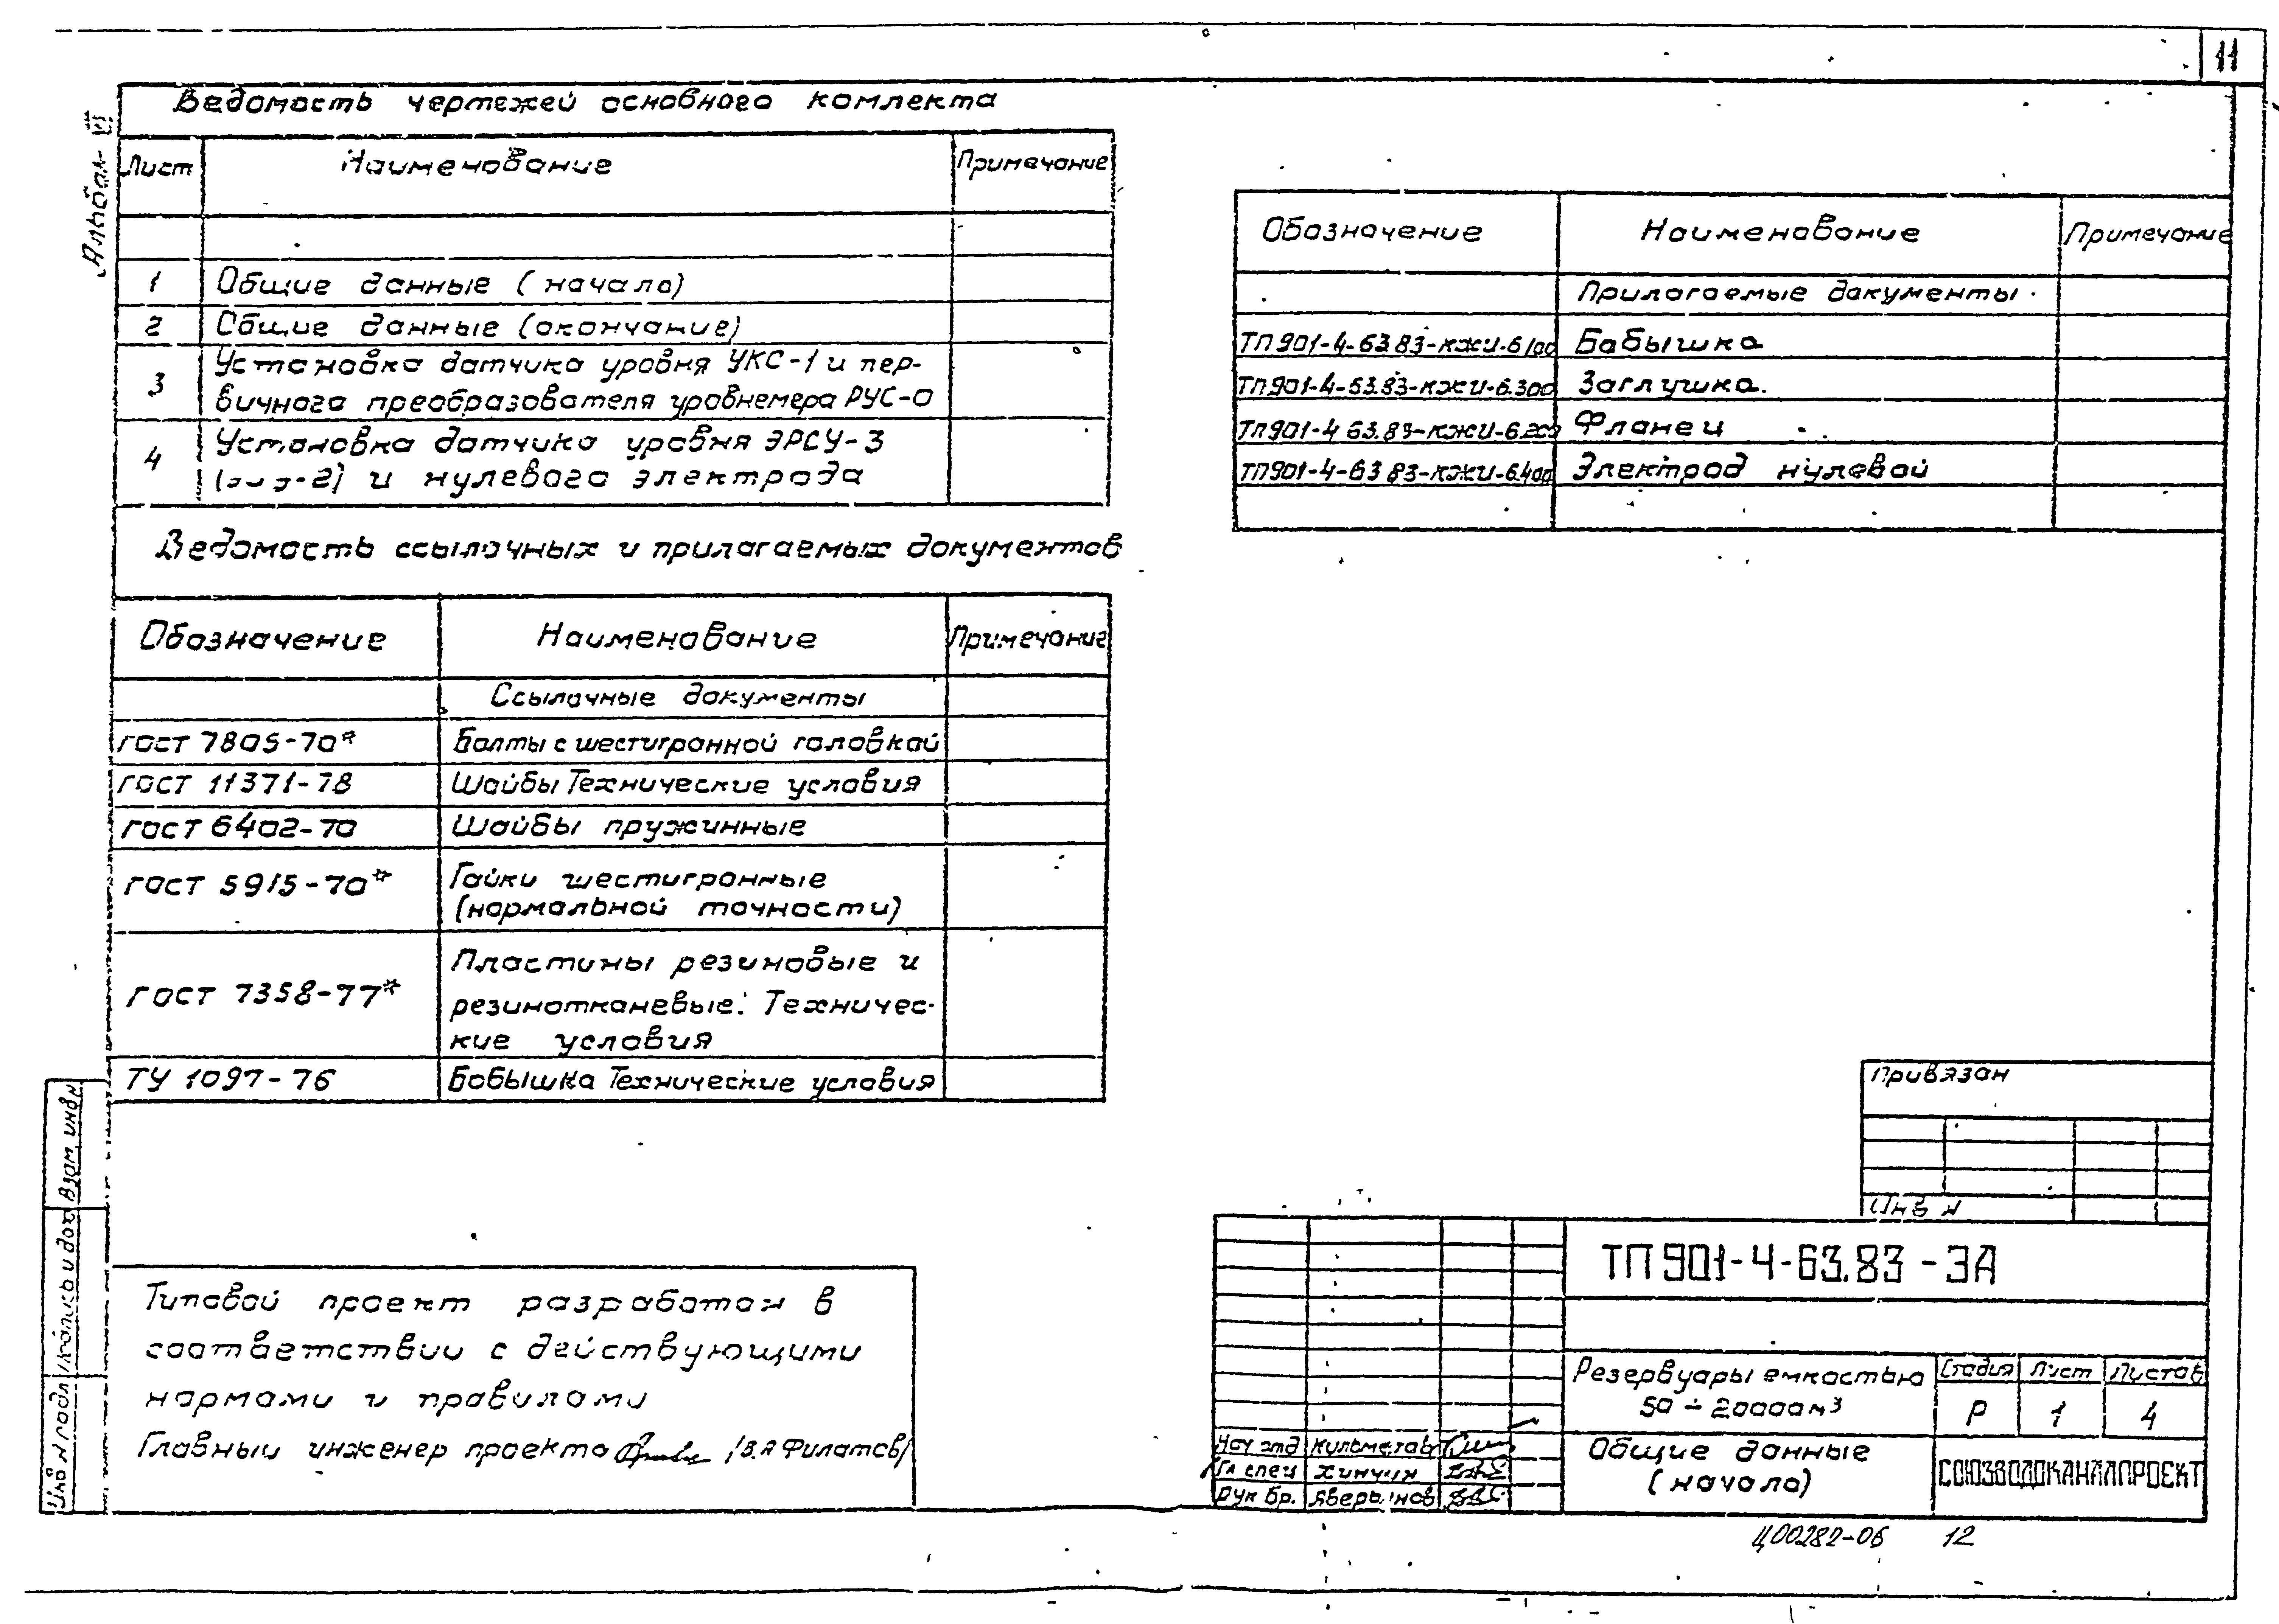 11
Альбом VI
Ведомость чертежей основного комлекта
Лист Наименование Примечание
1 Общие данные (начало)
2 Общие данные (окончание)
3 Установка датчика уровня УКС-1 и пер-
вичного преобразователя уровнемера РУС-0
4 Установка датчика уровня ЭРСУ-3
и нулевого электрода
Ведомость ссылочных и прилагаемых документов
Обозначение Наименование Примечание
Ссылочные документы
ГОСТ 7805-70* Болты с шестигранной головкой
ГОСТ 11371-78 Шайбы Технические условия
ГОСТ 6402-70 Шайбы пружинные
ГОСТ 5915-70* Гайки шестигранные
(нормальной точности)
ГОСТ 7358-77* Пластины резиновые и
резинотканевые. Техничес-
кие условия
ТУ 1097-76 Бобышка Технические условия
Обозначение Наименование Примечание
Прилагаемые документы
ТП901-4-63.83-КЖИ-6.100 Бабышка
ТП901-4-63.83-КЖИ-6.300 Заглушка.
ТП901-4 63.83-КЖИ-6.200 Фланец
ТП901-4-63 83-КЖИ-6.400 Электрод нулевой
Типовой проект разработан в
соответствии с действующими
нормами и правилами
Главный инженер проекта /В.Я Филатов/
Взам. инв.
Подпись и дата
Инв N подл
Привязан
Инв N
ТП 901-4-63.83-ЭА
Резервуары емкостью
50 ÷ 20000 м³
Стадия Лист Листов
Р 1 4
Общие данные
(начало)
СОЮЗВОДОКАНАЛПРОЕКТ
Нач отд
Гл спец Хинчин
Рук бр. Аверьянов
Ц00282-06 12